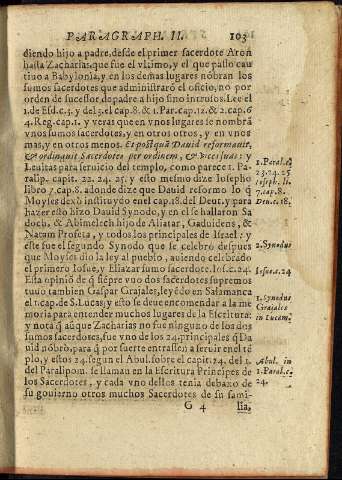 PARAGRAPH. II. 103
diendo hijo a padre, desde el primer sacerdote Aron
hasta Zacharias, que fue el vltimo, y el que passo cau
tiuo a Babylonia, y en los demas lugares nõbran los
sumos sacerdotes que administrarõ el oficio, no por
orden de sucessor, de padre a hijo sino intrusos. Lee el
1. de Esd. c. 3. y del 3. el cap. 8. & 1. Par. cap. 12. & 2. cap. 6
4. Reg. cap. 1. y veras que en vnos lugares se nombrã
vnos sumos sacerdotes, y en otros otros, y en vnos
mas, y en otros menos. Et postquã Dauid reformauit,
& ordinauit Sacerdotes per ordinem, & vices suas: y
Leuitas para seruicio del templo, como parece 1. Pa-
ralip. capit. 22. 24. 25. y esto mesmo dize Iosepho
libro 7. cap. 8. adonde dize que Dauid reformo lo q̃
Moyses dexò instituydo en el cap. 18. del Deut. y para
hazer esto hizo Dauid Synodo, y en el se hallaron Sa
doch, & Abimelech hijo de Aliatar, Gaduidens, &
Natam Profeta, y todos los principales de Israel: y
este fue el segundo Synodo que se celebrò despues
que Moyses dio la ley al pueblo, auiendo celebrado
el primero Iosue, y Eliazar sumo sacerdote. Ios. c. 24.
Esta opiniõ de q̃ siẽpre vuo dos sacerdotes supremos
tuuo tambien Gaspar Grajales, leyẽdo en Salamanca
el 1. cap. de S. Lucas, y esto se deue encomendar a la me
moria para entender muchos lugares de la Escritura:
y nota q̃ aũque Zacharias no fue ninguno de los dos
sumos sacerdotes, fue vno de los 24. principales q̃ Da
uid nõbrò, para q̃ por suerte entrassen a seruir en el tẽ
plo, y estos 24. segun el Abul. sobre el capit. 24. del 1.
del Paralipom. se llaman en la Escritura Principes de
los Sacerdotes, y cada vno dellos tenia debaxo de
su gouierno otros muchos Sacerdotes de su fami-
G 4 lia,
1. Paral. c.
23. 24. 25
Ioseph. li.
7. cap. 8.
Deu. c. 18.
2. Synodus
Iosue. c. 24
1. Synodus
Grajales
in Lucam.
Abul. in
1. Paral. c.
24.